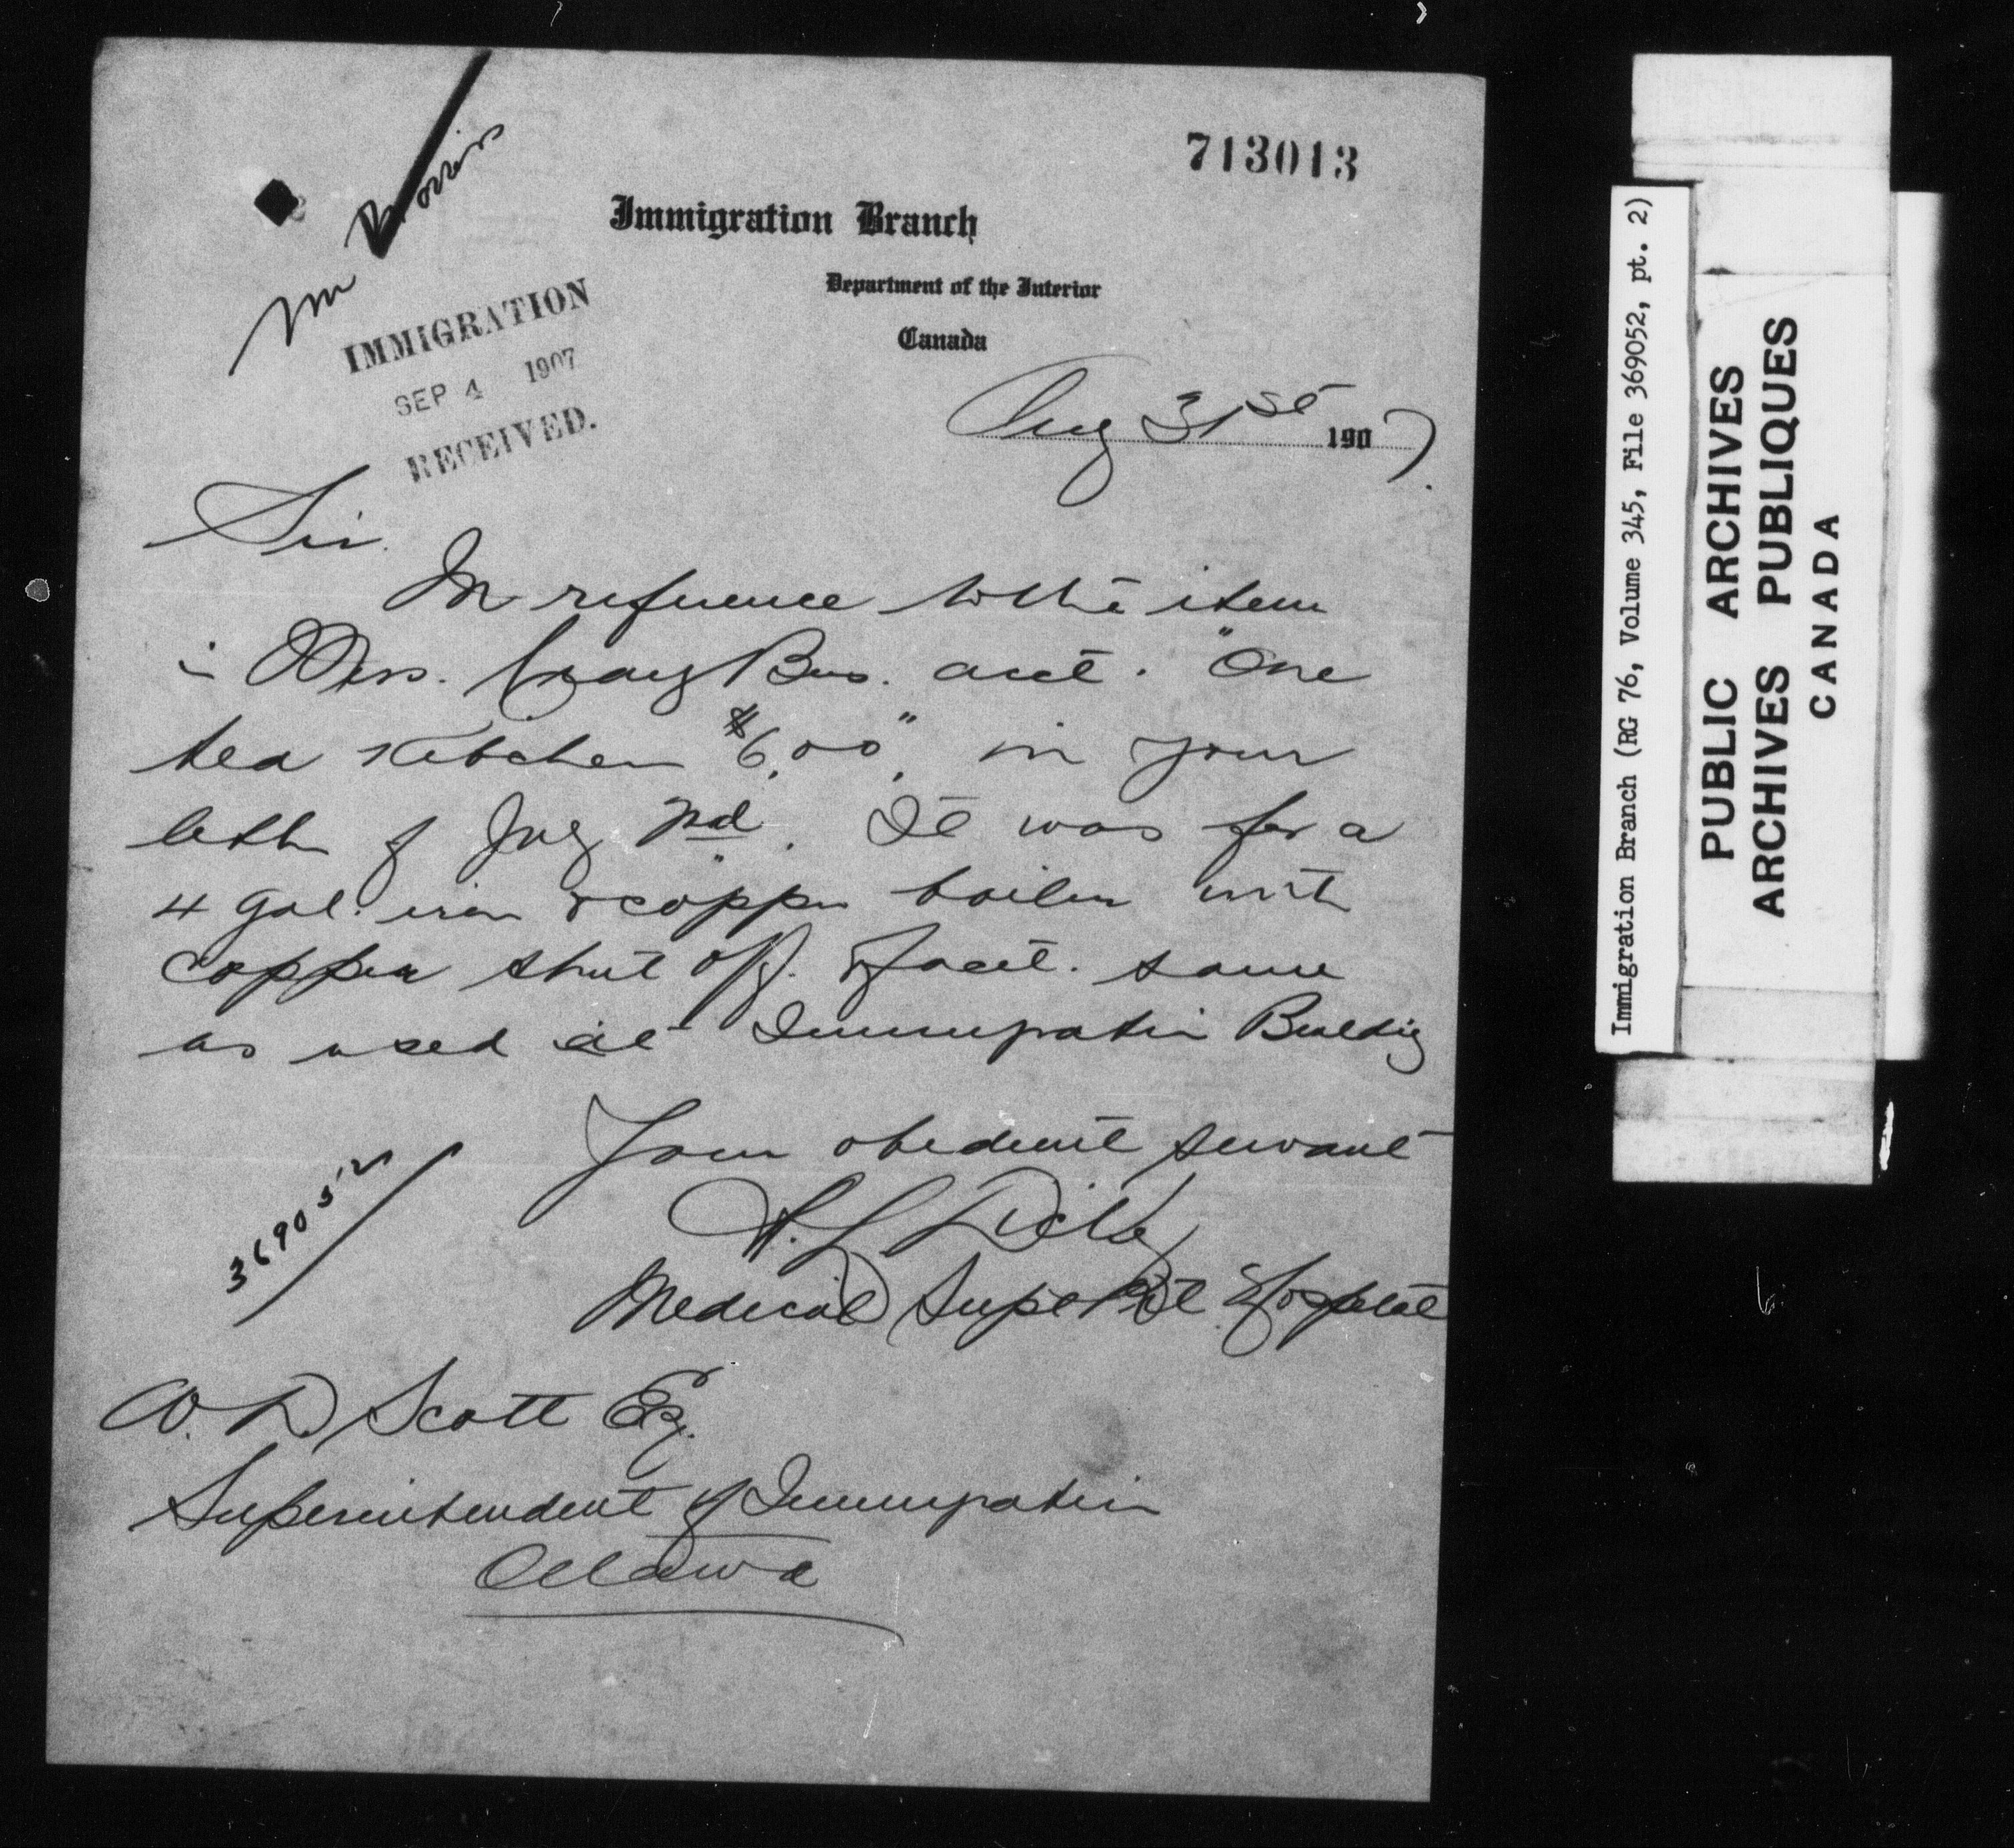 713013
Mr Morris
Immigration Branch
Department of the Interior
Canada
IMMIGRATION
SEP 4 1907
RECEIVED.
Aug 31st 1907.
Sir.
In reference to the item
in Mess. Gray Bros. acct. "One
tea kitchen $6.00", in your
letter of Aug 2nd. It was for a
4 gal. iron & copper boiler with
copper shut off. & facet. same
as used at Immigration Building
Your obedient servant
369052
Medical Supt Hospital
W. D. Scott Esq.
Superintendent of Immigration
Ottawa
Immigration Branch (RG 76, Volume 345, File 369052, pt. 2)
PUBLIC ARCHIVES
ARCHIVES PUBLIQUES
CANADA